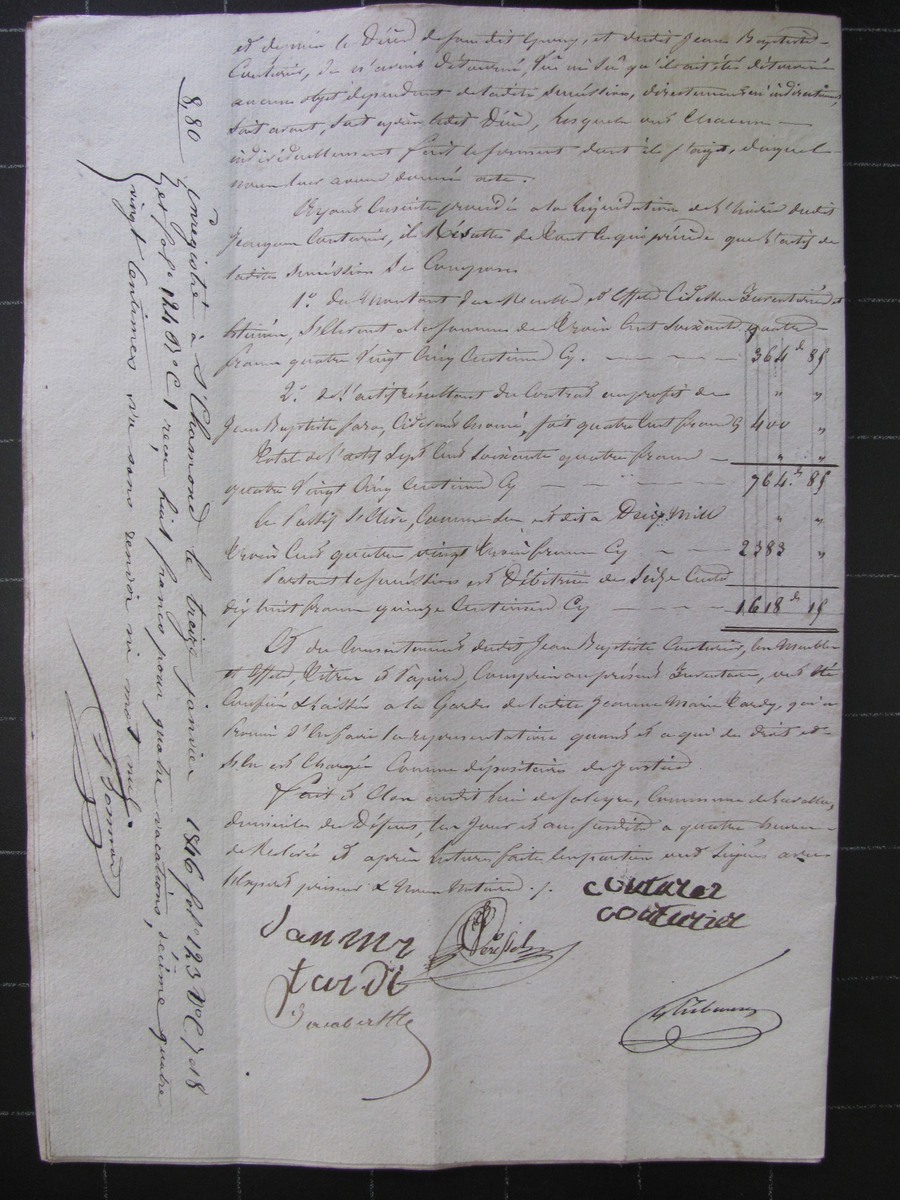 et depuis le Décès de sondit époux, et dudit Jean Baptiste
Couturier, de n'avoir détourné, vu ni su qu'il ait été détourné
aucun objet dépendant de ladite succession, directement ni indirectement,
soit avant, soit après ledit Décès, lesquels ont chacun
individuellement fait le serment dont il s'agit, duquel
nous leur avons donné acte.
Ayant ensuite procédé à la liquidation de l'hoirie dudit
Couturier, il Résulte de tout ce qui précède que l'actif de
ladite succession se compose
1o. du montant des Meubles et Effets Ci dessus Inventoriés et
estimés, s'élevant à la somme de trois Cent Soixante quatre
francs quatre vingt Cinq Centimes Cy. — — — — 364 85
2o. de l'actif résultant du Contrat au profit de
Jean Baptiste , Ci dessus énoncé, soit quatre Cent francs Cy 400 "
Total de l'actif Sept Cent Soixante quatre francs —
quatre vingt Cinq Centimes Cy — — — — 764 85
Le Passif s'élève, Comme il est dit à Deux Mille
trois Cent quatre vingt trois francs Cy — — — 2383 "
Partant la succession est Débitrice de Seize Cent
dix huit francs quinze Centimes Cy — — — — 1618 15
Et du Consentement dudit Jean Baptiste Couturier, les Meubles
et Effets, Titres et Papiers, Compris au présent Inventaire, ont été
Confiés & laissés à la Garde de ladite Jeanne Marie Tardy, qui a
promis d'en faire la représentation quand et à qui de droit et
s'en est Chargée Comme dépositaire de Justice.
Fait et Clos audit lieu de , Commune de ,
domicile du Défunt, les Jour et an susdits à quatre heures
de Relevée et après lecture faite les parties ont signé avec
l'expert priseur & Nous Notaire ./.
couturier
couturier
Janmr
tardi
8,80 Enregistré à St Chamond le treize janvier 1846 fol. 123 Vo C. 7 et 8
et fol. 124 Ro C. 1 reçu huit francs pour quatre vacations, décime quatre
vingt Centimes vu sans renvoi ni mot nul.